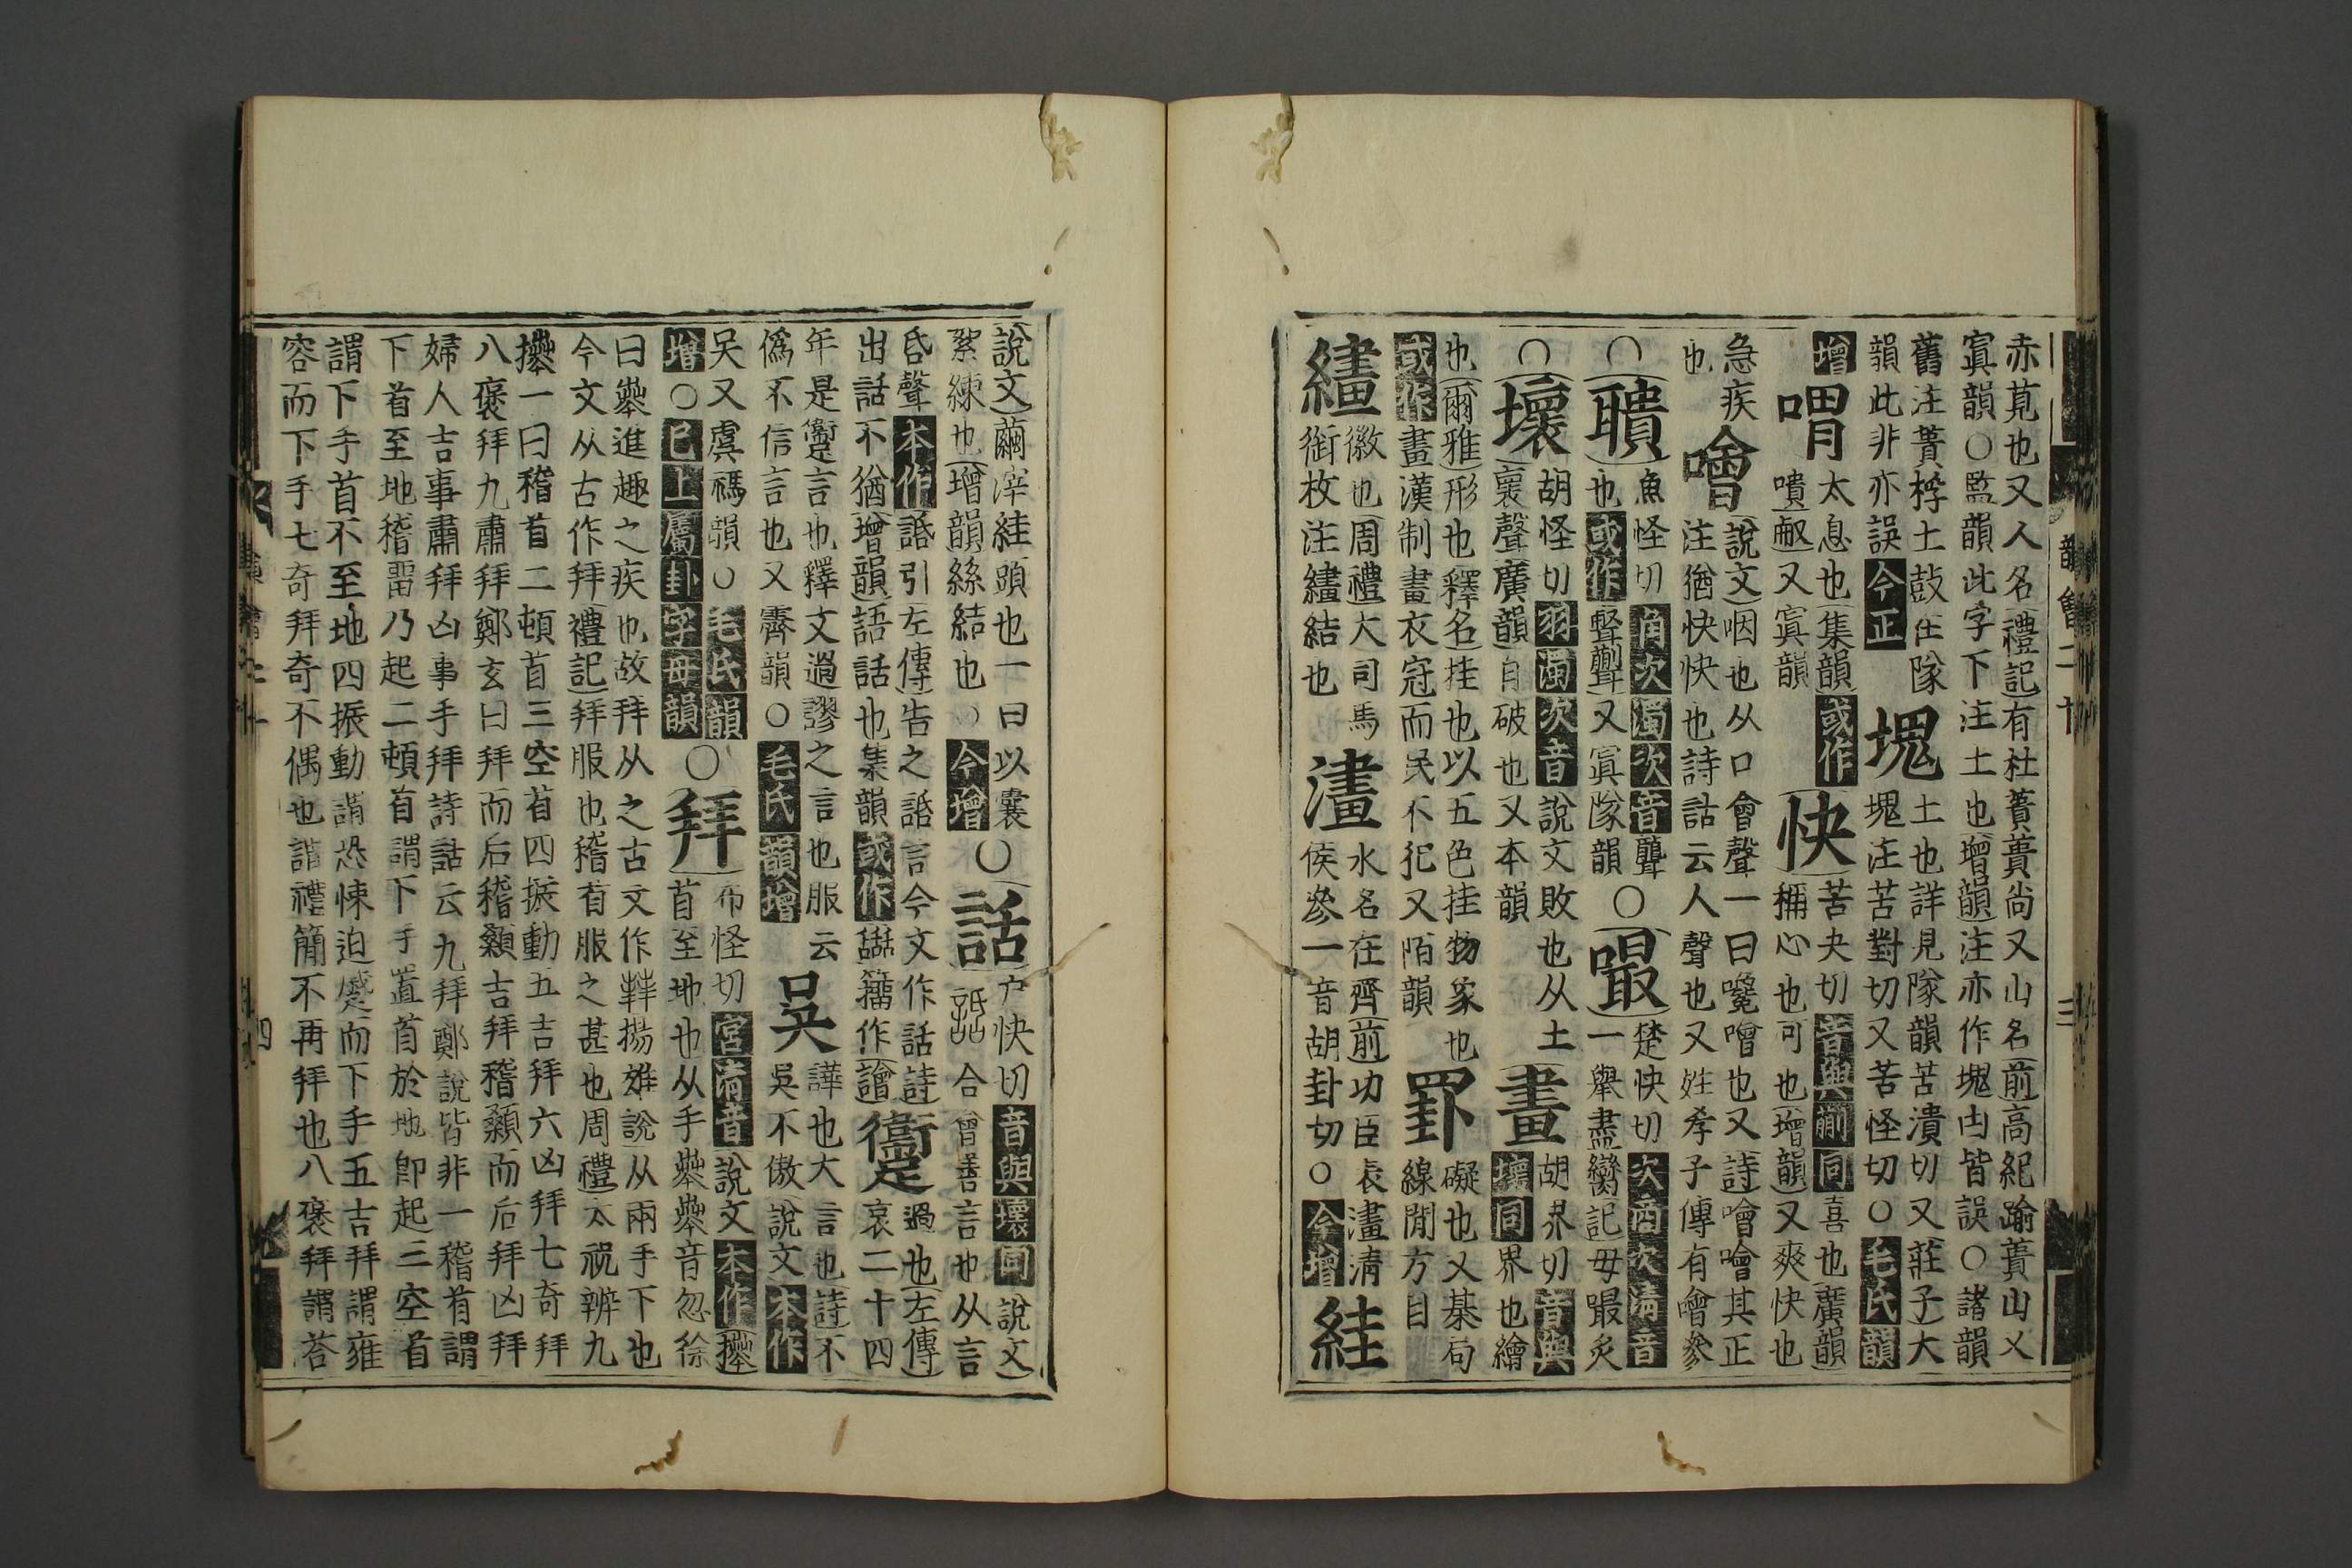 赤莧也又人名禮記有杜蕢蕢尚又山名前高紀踰蕢山乂
寘韻○監韻此字下注土也增韻注亦作塊凷皆誤○諸韻
舊注蕢桴土鼓在隊
韻此非亦誤今正
塊
土也詳見隊韻苦潰切又莊子大
塊注苦對切又苦怪切○毛氏韻
增
喟
太息也集韻或作
嘳㕟又寘韻
快
苦夬切音與蒯同喜也廣韻
稱心也可也增韻又爽快也
急疾
也
噲
說文咽也从口會聲一曰嚵噲也又詩噲噲其正
注猶快快也詩詁云人聲也又姓孝子傳有噲參
○
聵
魚怪切角次濁次音聾
也或作聲聲又寘隊韻
○
嘬
楚快切次商次清音
一舉盡臠記毋嘬炙
○
壞
胡怪切羽濁次音說文敗也从土
褱聲廣韻自破也又本韻
畫
胡界切音與
壞同界也繪
也爾雅形也釋名挂也以五色挂物象也
或作畫漢制畫衣冠而民不犯又陌韻
罫
礙也又棊局
線閒方目
繣
徽也周禮大司馬
銜枚注繣結也
澅
水名在齊前功臣表澅清
侯參一音胡卦切○今增
絓
說文繭滓絓頭也一曰以囊
絮練也增韻絲結也○今增
○
話
戶快切音與壞同說文
合會善言也从言
𠯑聲本作䛡引左傳告之䛡言今文作話詩
出話不猶增韻語話也集韻或作譮籀作譮
躗
過也左傳
哀二十四
年是躗言也釋文過謬之言也服云
僞不信言也又霽韻○毛氏韻增
吳
譁也大言也詩不
吳不傲說文本作
吳又虞禡韻○毛氏韻
增○已上屬卦字母韻
○
拜
布怪切宮清音說文本作𢷎
首至地也从手𠦪𠦪音忽徐
曰𠦪進趣之疾也故拜从之古文作𢫶揚雄說从兩手下也
今文从古作拜禮記拜服也稽首服之甚也周禮太祝辨九
𢷎一曰稽首二頓首三空首四振動五吉拜六凶拜七奇拜
八褒拜九肅拜鄭玄曰拜而后稽顙吉拜稽顙而后拜凶拜
婦人吉事肅拜凶事手拜詩詁云九拜鄭說皆非一稽首謂
下首至地稽留乃起二頓首謂下手置首於地卽起三空首
謂下手首不至地四振動謂恐悚迫蹙而下手五吉拜謂雍
容而下手七奇拜奇不偶也謂禮簡不再拜也八褒拜謂荅
韻會二十
三
四